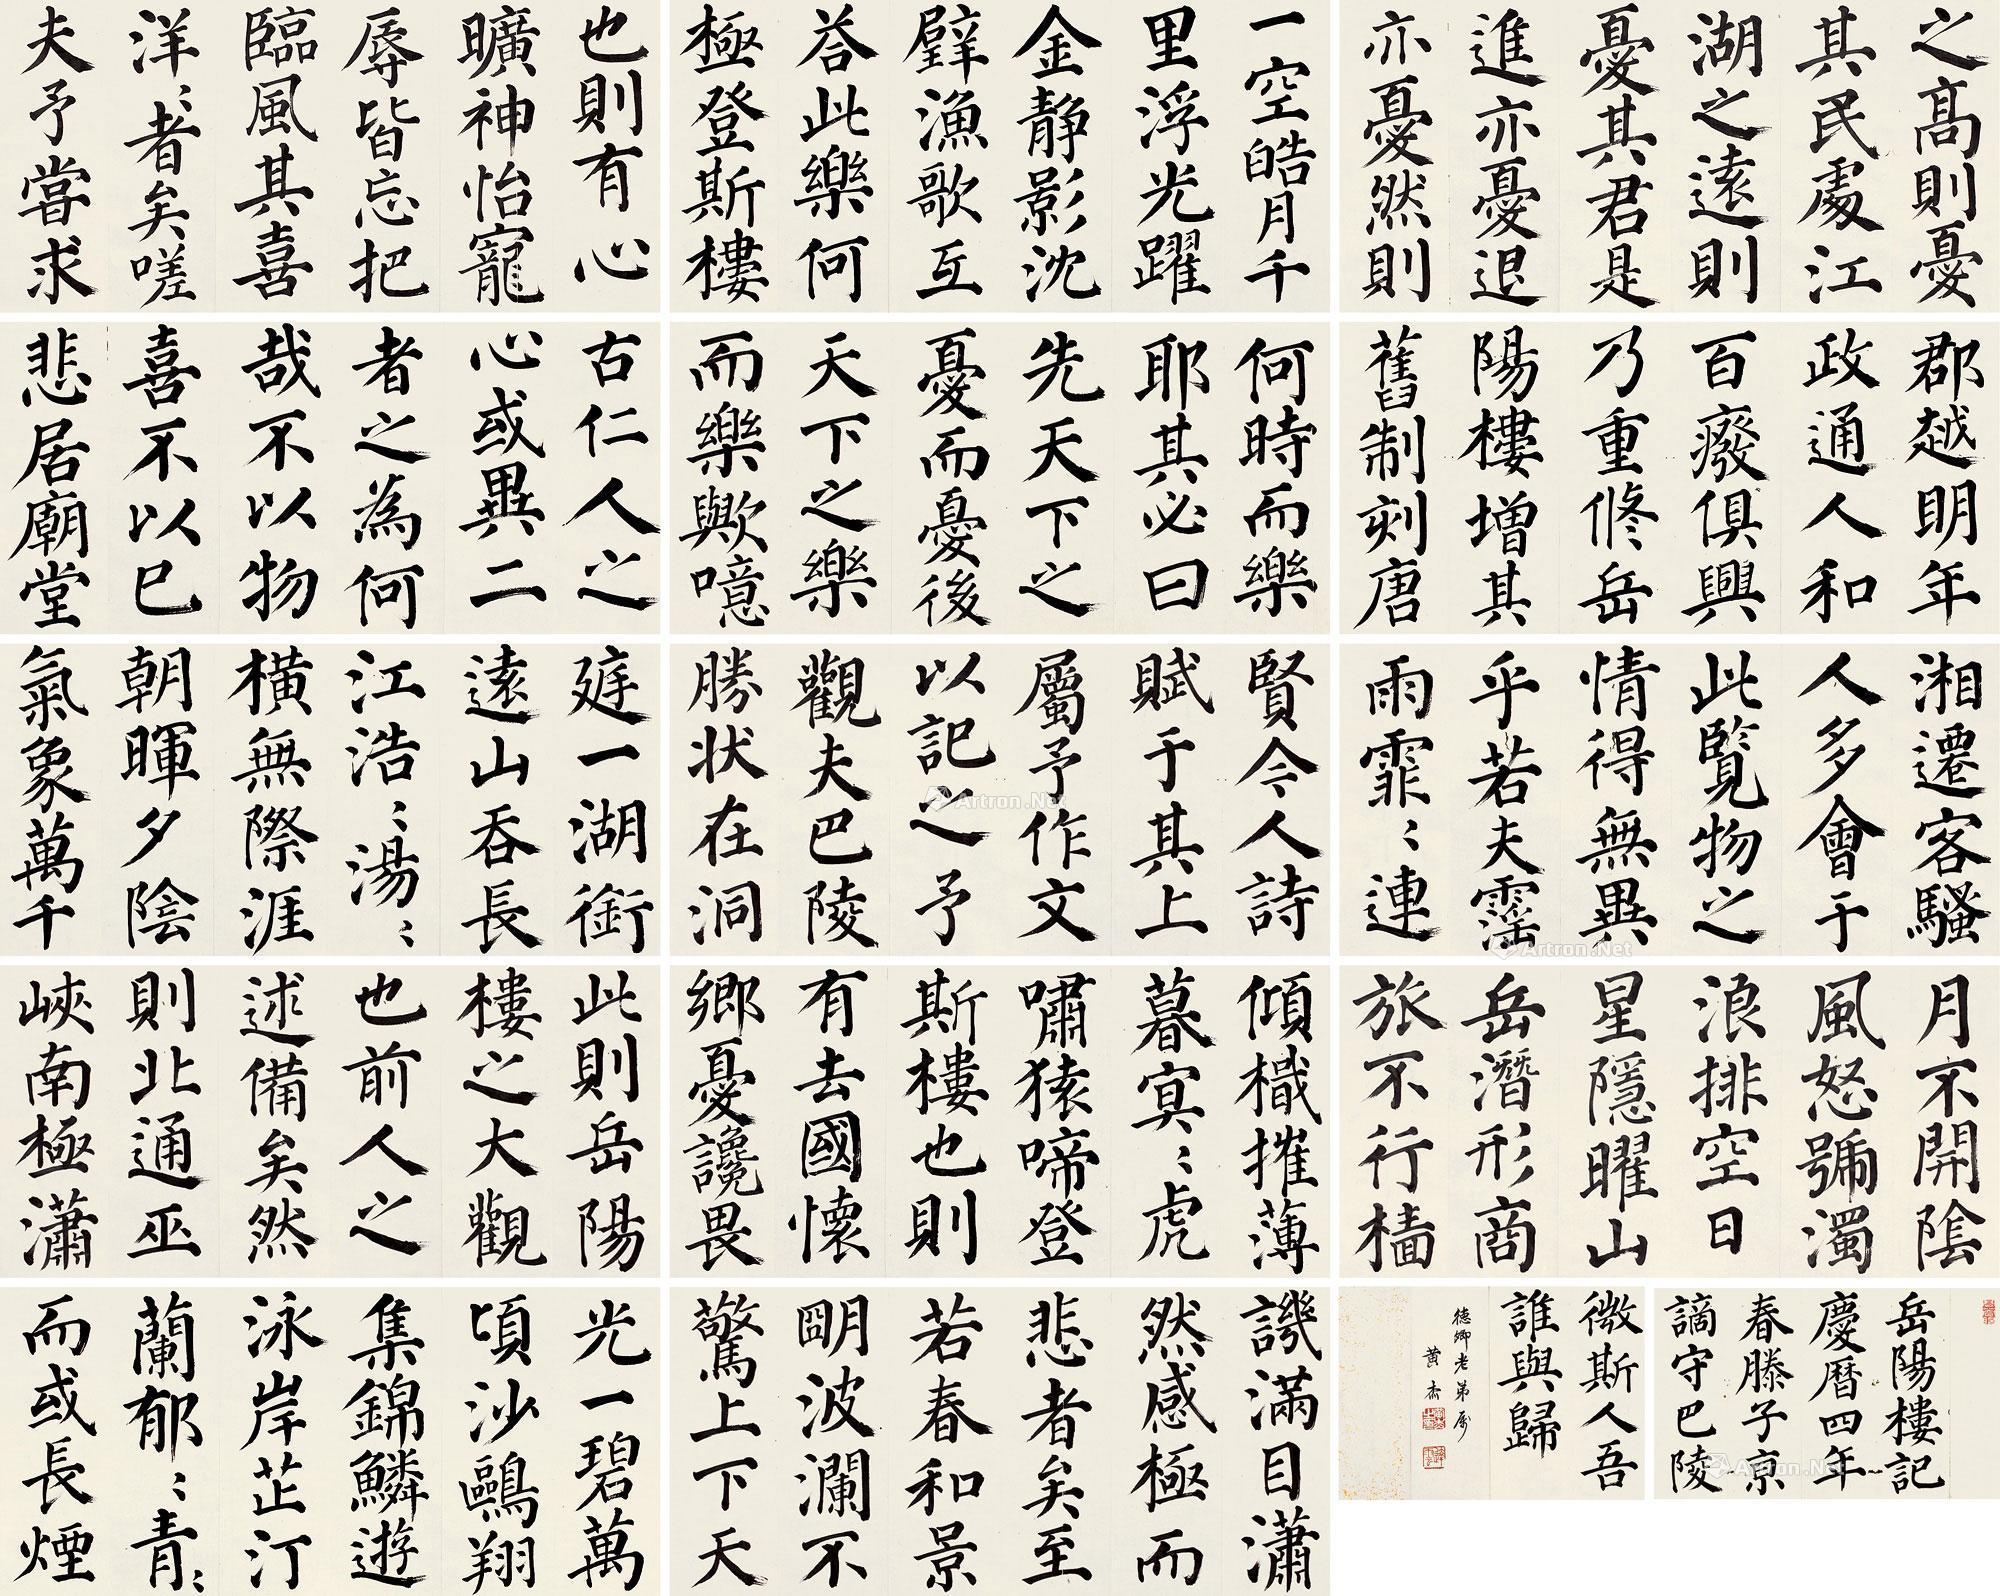 岳陽樓記
慶曆四年
春滕子京
謫守巴陵
郡越明年
政通人和
百廢俱興
乃重修岳
陽樓增其
舊制刻唐
賢今人詩
賦于其上
屬予作文
以記之予
觀夫巴陵
勝狀在洞
庭一湖銜
遠山吞長
江浩〻湯〻
橫無際涯
朝暉夕陰
氣象萬千
此則岳陽
樓之大觀
也前人之
述備矣然
則北通巫
峽南極瀟
湘遷客騷
人多會于
此覽物之
情得無異
乎若夫霪
雨霏〻連
月不開陰
風怒號濁
浪排空日
星隱曜山
岳潛形商
旅不行檣
傾檝摧薄
暮冥〻虎
嘯猿啼登
斯樓也則
有去國懷
鄉憂讒畏
譏滿目瀟
然感極而
悲者矣至
若春和景
明波瀾不
驚上下天
光一碧萬
頃沙鷗翔
集錦鱗遊
泳岸芷汀
蘭郁〻青〻
而或長煙
一空皓月千
里浮光躍
金靜影沈
璧漁歌互
荅此樂何
極登斯樓
也則有心
曠神怡寵
辱皆忘把
臨風其喜
洋〻者矣嗟
夫予嘗求
古仁人之
心或異二
者之為何
哉不以物
喜不以己
悲居廟堂
之高則憂
其民處江
湖之遠則
憂其君是
進亦憂退
亦憂然則
何時而樂
耶其必曰
先天下之
憂而憂後
天下之樂
而樂歟噫
微斯人吾
誰與歸
德卿老弟屬
黃杰
Artron.Net
Artron.Net
Artron.Net